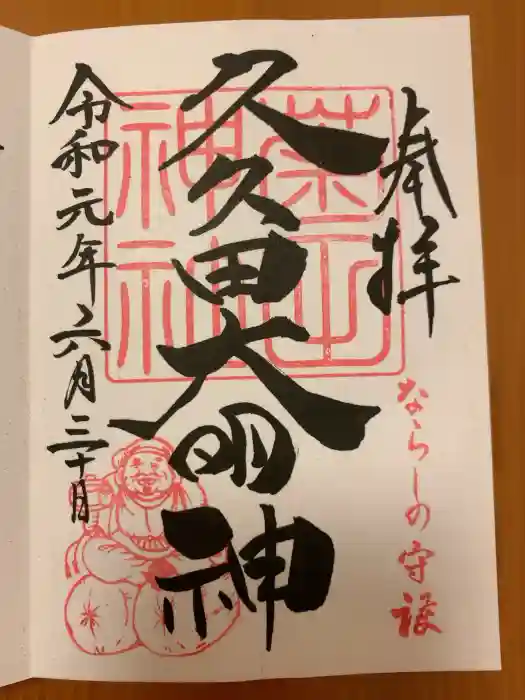 奉拝
ならしの守護
菊田神社
久久田大明神
令和元年六月三十日